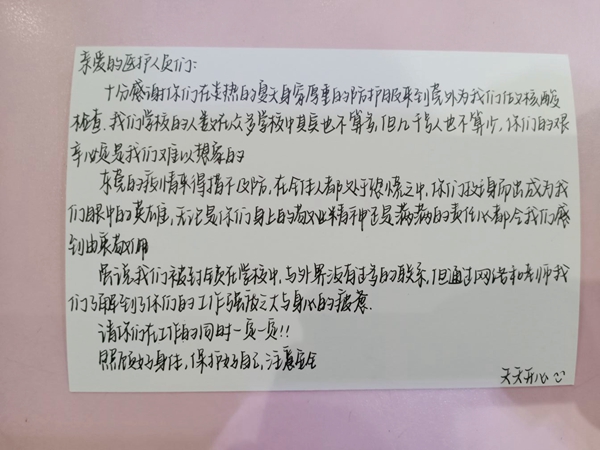 亲爱的医护人员们:
十分感谢你们在炎热的夏天身穿厚重的防护服来到院外为我们做核酸
检查.我们学校的人数在众多学校中其实也不算多,但几千号人也不算少,你们的艰
辛必定是我们难以想象的
东莞的疫情来得措不及防,在全体人都处于恐慌之中,你们挺身而出成为我
们眼中的英雄,无论是你们身上的敬业精神还是满满的责任心都令我们感
到由衷敬佩
虽说我们被封锁在学校中,与外界没有过多的联系,但通过网络和老师我
们了解到了你们的工作强度之大与身心的疲惫.
请你们在工作的同时一定一定!!
照顾好身体,保护好自己,注意安全
天天开心